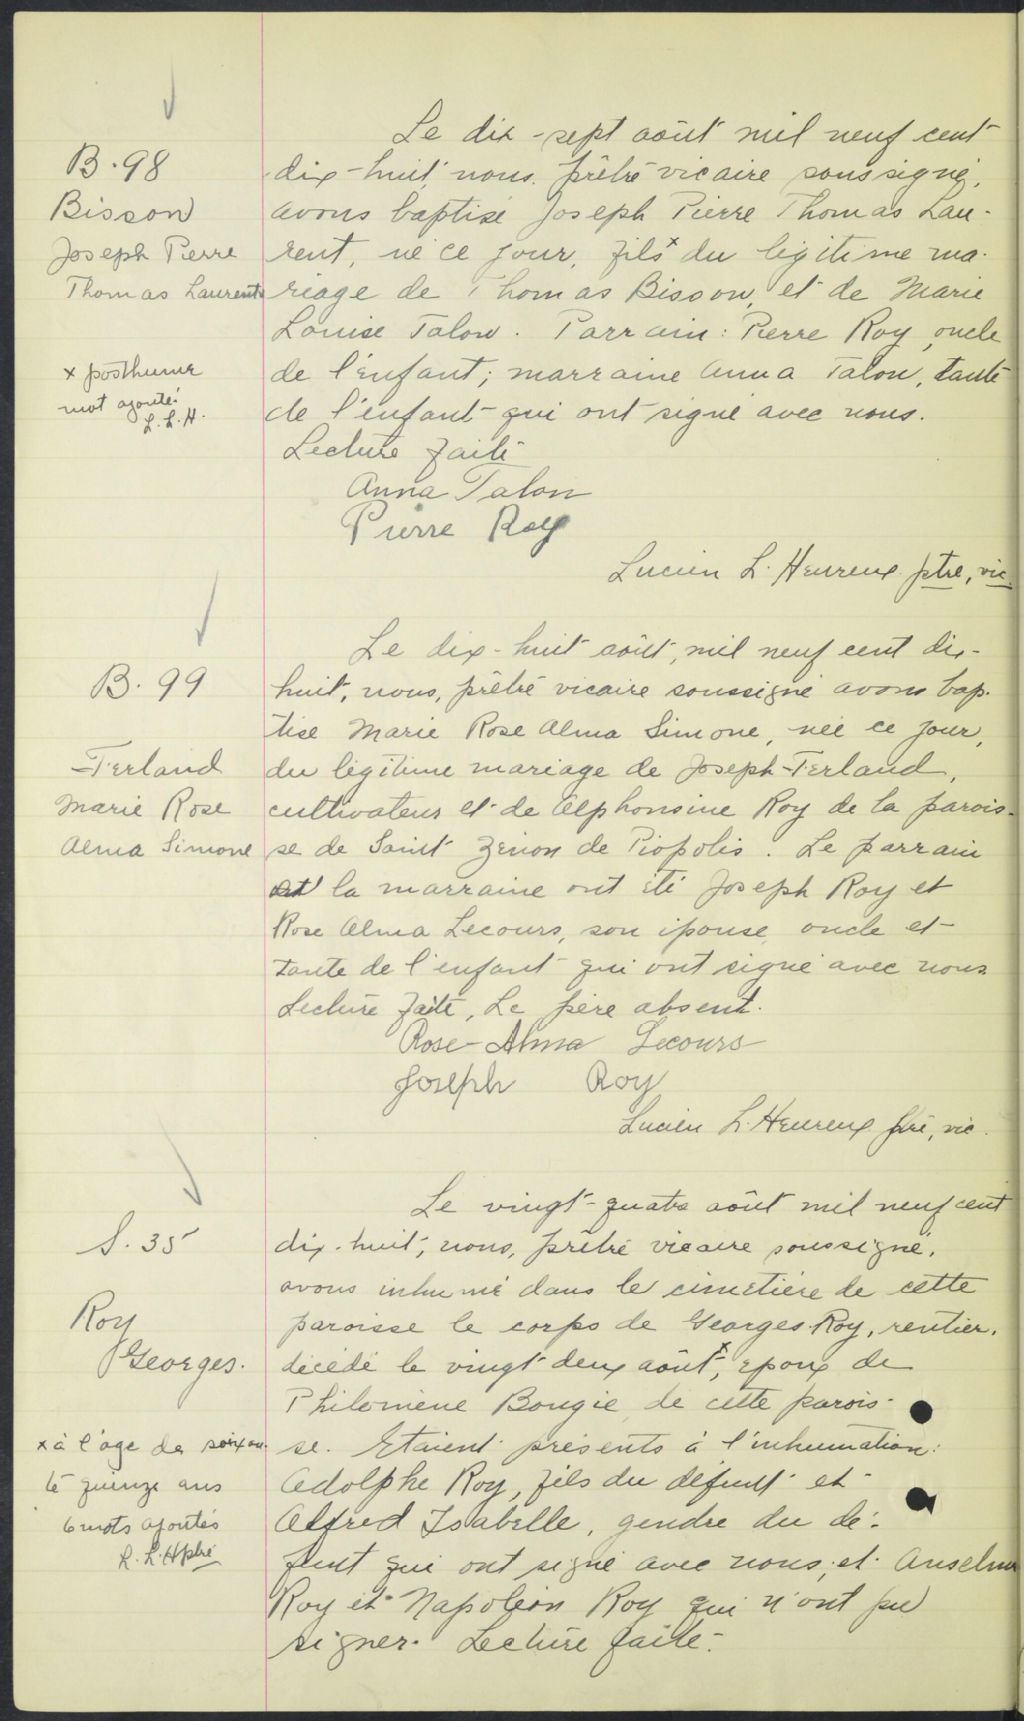 B. 98
Bisson
Joseph Pierre
Thomas Laurent
x posthume
mot ajouté
L. L. H.
Le dix-sept août mil neuf cent
dix-huit, nous, prêtre vicaire soussigné,
avons baptisé Joseph Pierre Thomas Lau-
rent, né ce jour, fils x du légitime ma-
riage de Thomas Bisson, et de Marie
Louise Talon. Parrain: Pierre Roy, oncle
de l'enfant; marraine Anna Talon, tante
de l'enfant qui ont signé avec nous.
Lecture faite
Anna Talon
Pierre Roy
Lucien L'Heureux ptre, vic.
B. 99
Ferland
Marie Rose
Alma Simone
Le dix-huit août, mil neuf cent dix-
huit, nous, prêtre vicaire soussigné avons bap-
tisé Marie Rose Alma Simone, née ce jour,
du légitime mariage de Joseph Ferland,
cultivateur et de Alphonsine Roy de la parois-
se de Saint Zénon de Piopolis. Le parrain
et la marraine ont été Joseph Roy et
Rose Alma Lecours, son épouse, oncle et
tante de l'enfant qui ont signé avec nous
Lecture faite, Le père absent.
Rose-Alma Lecours
Joseph Roy
Lucien L'Heureux ptre, vic.
S. 35
Roy
Georges.
x à l'âge de soixan-
te quinze ans
6 mots ajoutés
L. L. H ptre
Le vingt-quatre août mil neuf cent
dix-huit, nous, prêtre vicaire soussigné,
avons inhumé dans le cimetière de cette
paroisse le corps de Georges Roy, rentier,
décédé le vingt deux août x, époux de
Philomène Bougie, de cette parois-
se. Etaient présents à l'inhumation:
Adolphe Roy, fils du défunt et
Alfred Isabelle, gendre du dé-
funt qui ont signé avec nous, et Anselme
Roy et Napoléon Roy qui n'ont pu
signer. Lecture faite.